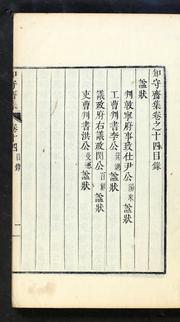 知守齋集卷之十四目錄
諡狀
判敦寧府事致仕尹公諡狀
工曹判書李公諡狀
議政府右議政閔公百祥諡狀
吏曹判書洪公諡狀
知守齋集
卷十四目錄
一